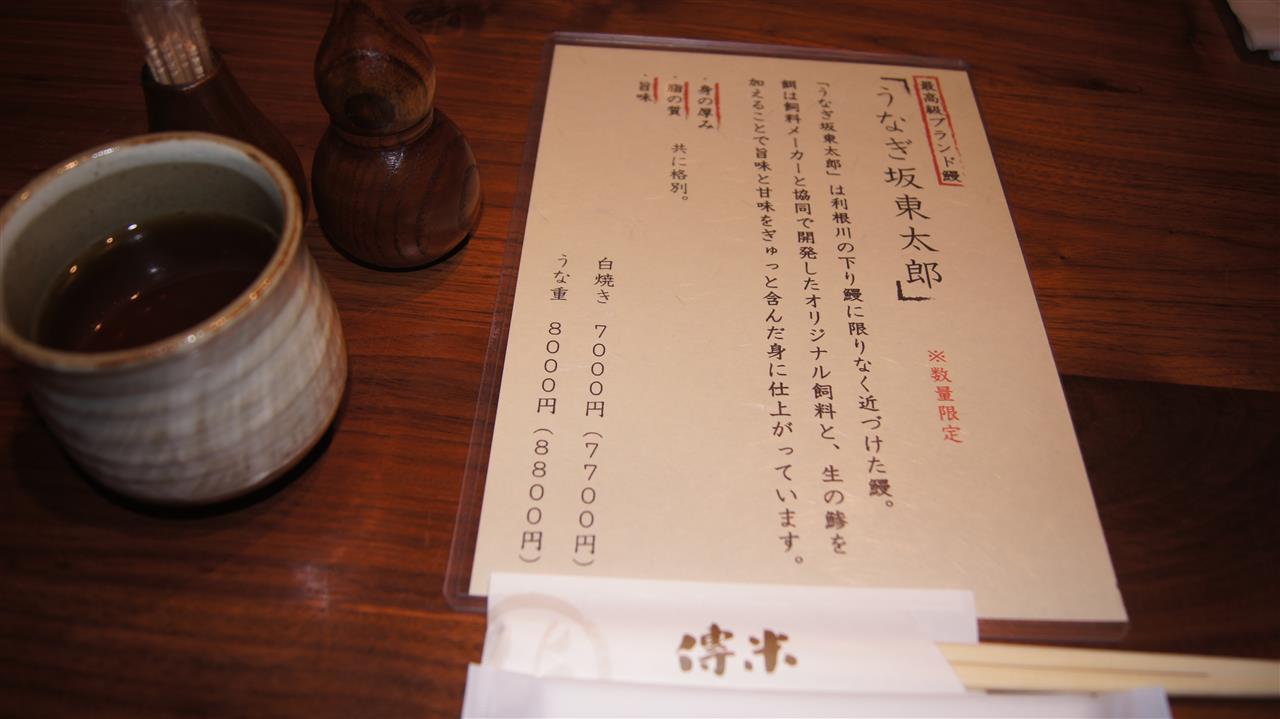 最高級ブランド鰻
「うなぎ坂東太郎」
※数量限定
「うなぎ坂東太郎」は利根川の下り鰻に限りなく近づけた鰻。
餌は飼料メーカーと協同で開発したオリジナル飼料と、生の鯵を
加えることで旨味と甘味をぎゅっと含んだ身に仕上がっています。
・身の厚み
・脂の質
・旨味
共に格別。
白焼き 7000円(7700円)
うな重 8000円(8800円)
傳米